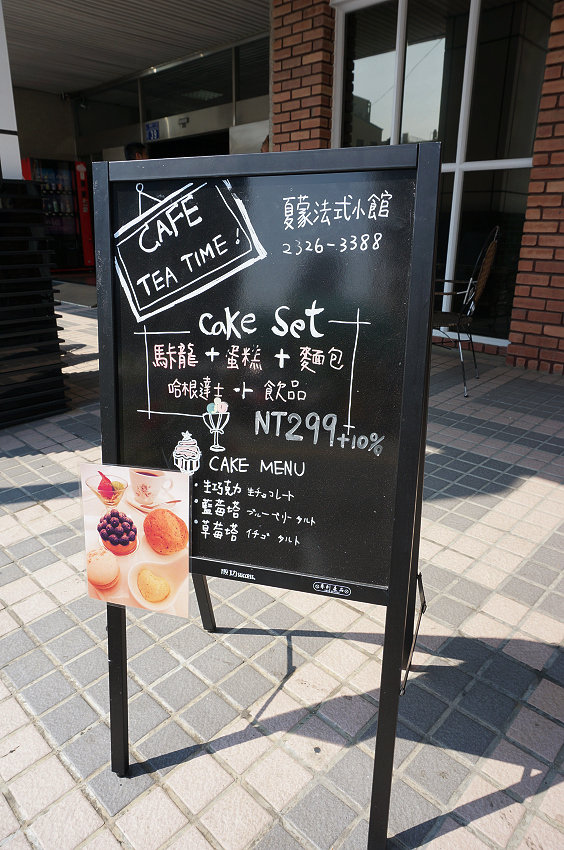 CAFE
TEA TIME!
夏蒙法式小館
2326-3388
Cake Set
馬卡龍+蛋糕+麵包
哈根達士+飲品
NT299+10%
CAKE MENU
・生巧克力 生チョコレート
・藍莓塔 ブルーベリータルト
・草莓塔 イチゴ タルト